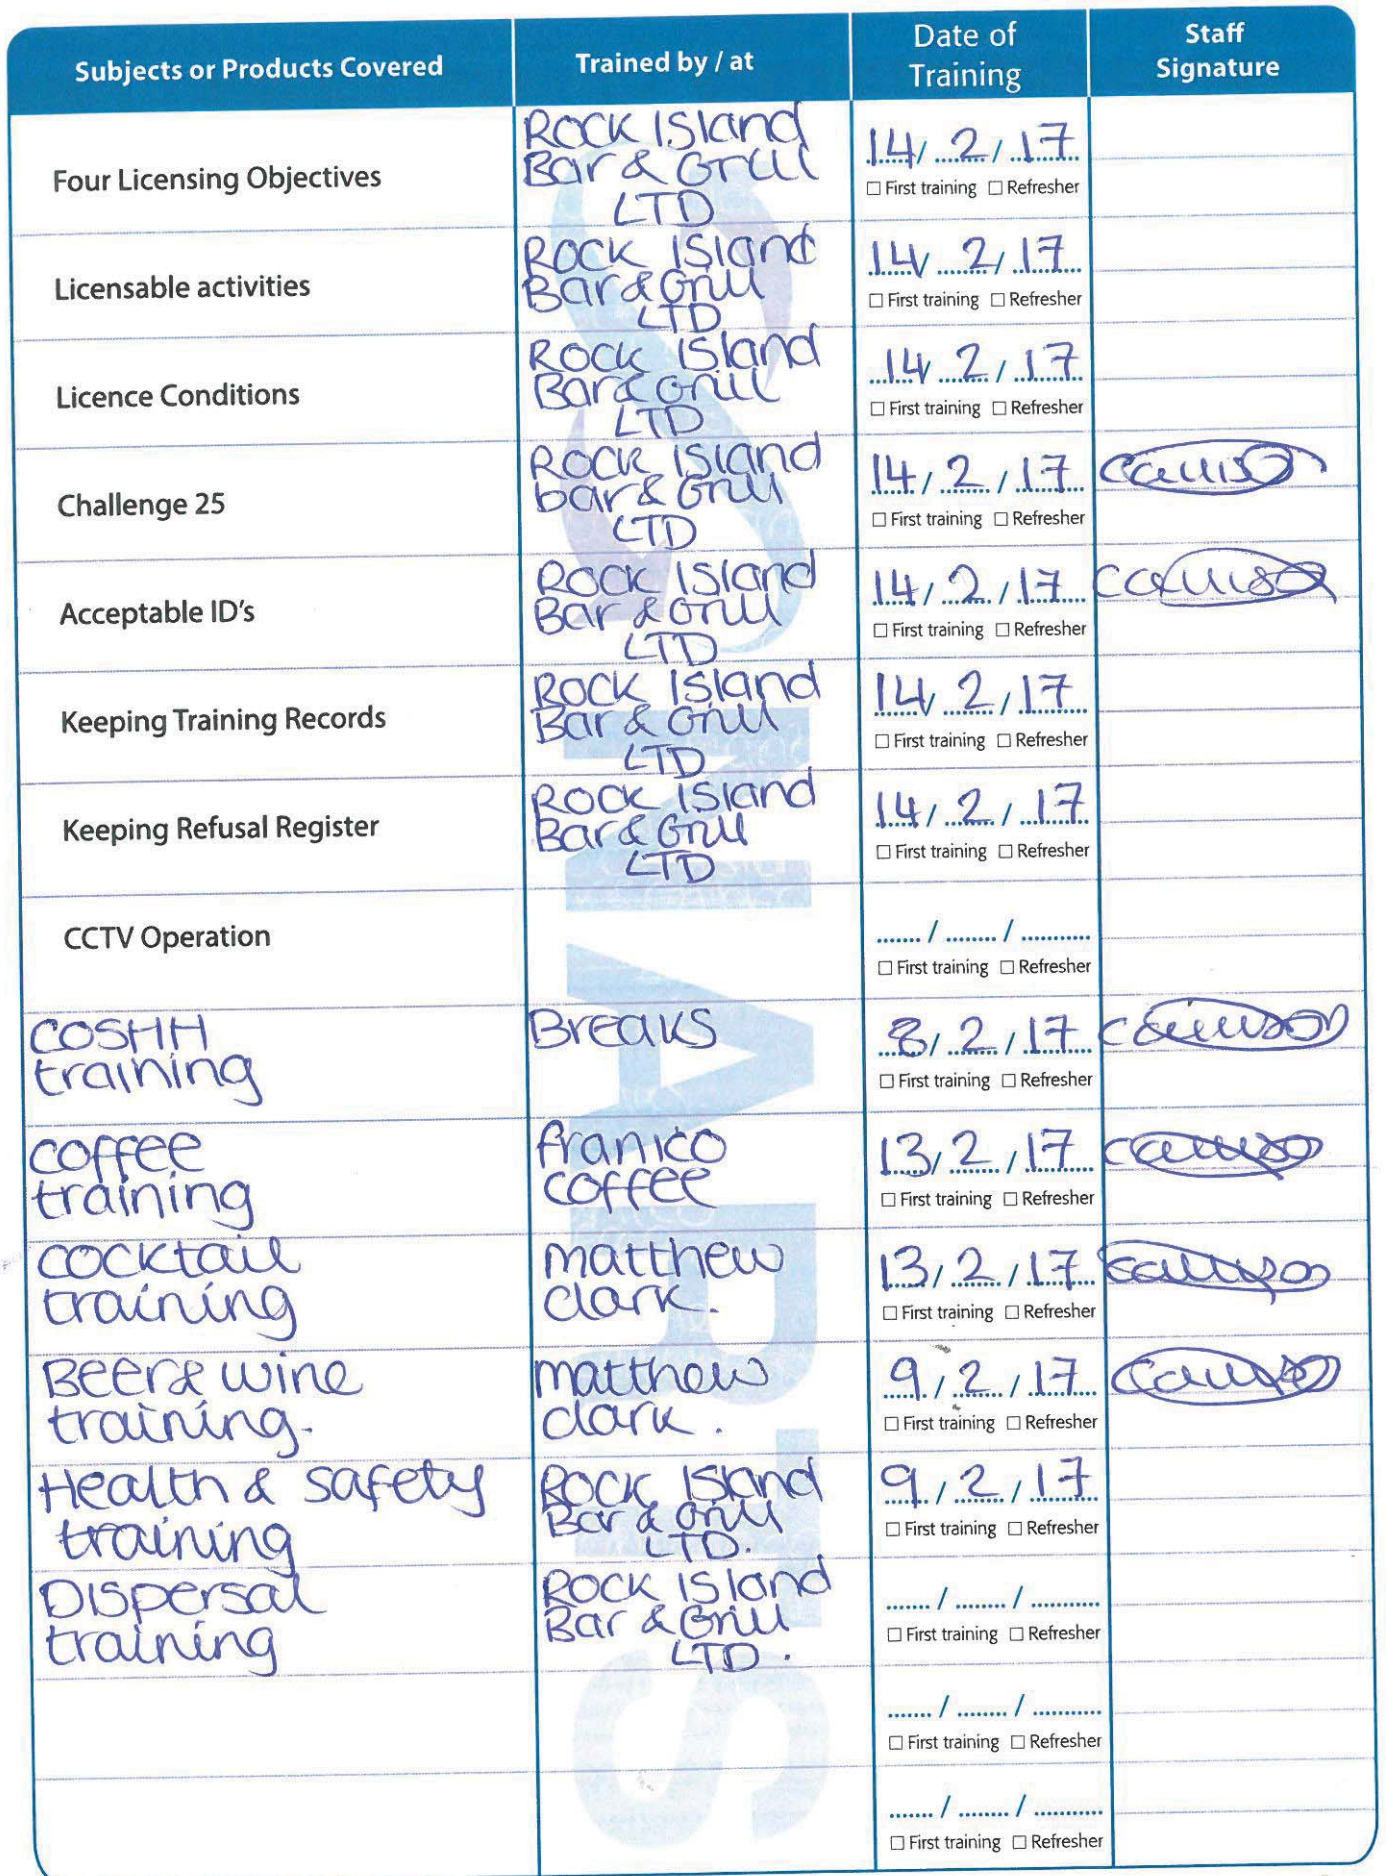 Subjects or Products Covered
Trained by / at
Date of
Training
Staff
Signature
Four Licensing Objectives
ROCK ISland
Bar & Grill
LTD
14/ 2/ 17
☐ First training ☐ Refresher
Licensable activities
ROCK ISland
Bar & Grill
LTD
14/ 2/ 17
☐ First training ☐ Refresher
Licence Conditions
ROCK ISland
Bar & Grill
LTD
14/ 2/ 17
☐ First training ☐ Refresher
Challenge 25
ROCK ISland
bar & Grill
LTD
14/ 2/ 17
☐ First training ☐ Refresher
Acceptable ID's
ROCK ISland
Bar & Grill
LTD
14/ 2/ 17
☐ First training ☐ Refresher
Keeping Training Records
ROCK ISland
Bar & Grill
LTD
14/ 2/ 17
☐ First training ☐ Refresher
Keeping Refusal Register
ROCK ISland
Bar & Grill
LTD
14/ 2/ 17
☐ First training ☐ Refresher
CCTV Operation
....... / ........ / ...........
☐ First training ☐ Refresher
COSHH
training
Breaks
8/ 2/ 17
☐ First training ☐ Refresher
coffee
training
franico
coffee
13/ 2/ 17
☐ First training ☐ Refresher
cocktail
training
matthew
clark.
13/ 2/ 17
☐ First training ☐ Refresher
Beer & wine
training.
matthew
clark.
9/ 2/ 17
☐ First training ☐ Refresher
Health & safety
training
ROCK ISland
Bar & Grill
LTD.
9/ 2/ 17
☐ First training ☐ Refresher
Dispersal
training
ROCK ISland
Bar & Grill
LTD.
....... / ........ / ...........
☐ First training ☐ Refresher
....... / ........ / ...........
☐ First training ☐ Refresher
....... / ........ / ...........
☐ First training ☐ Refresher